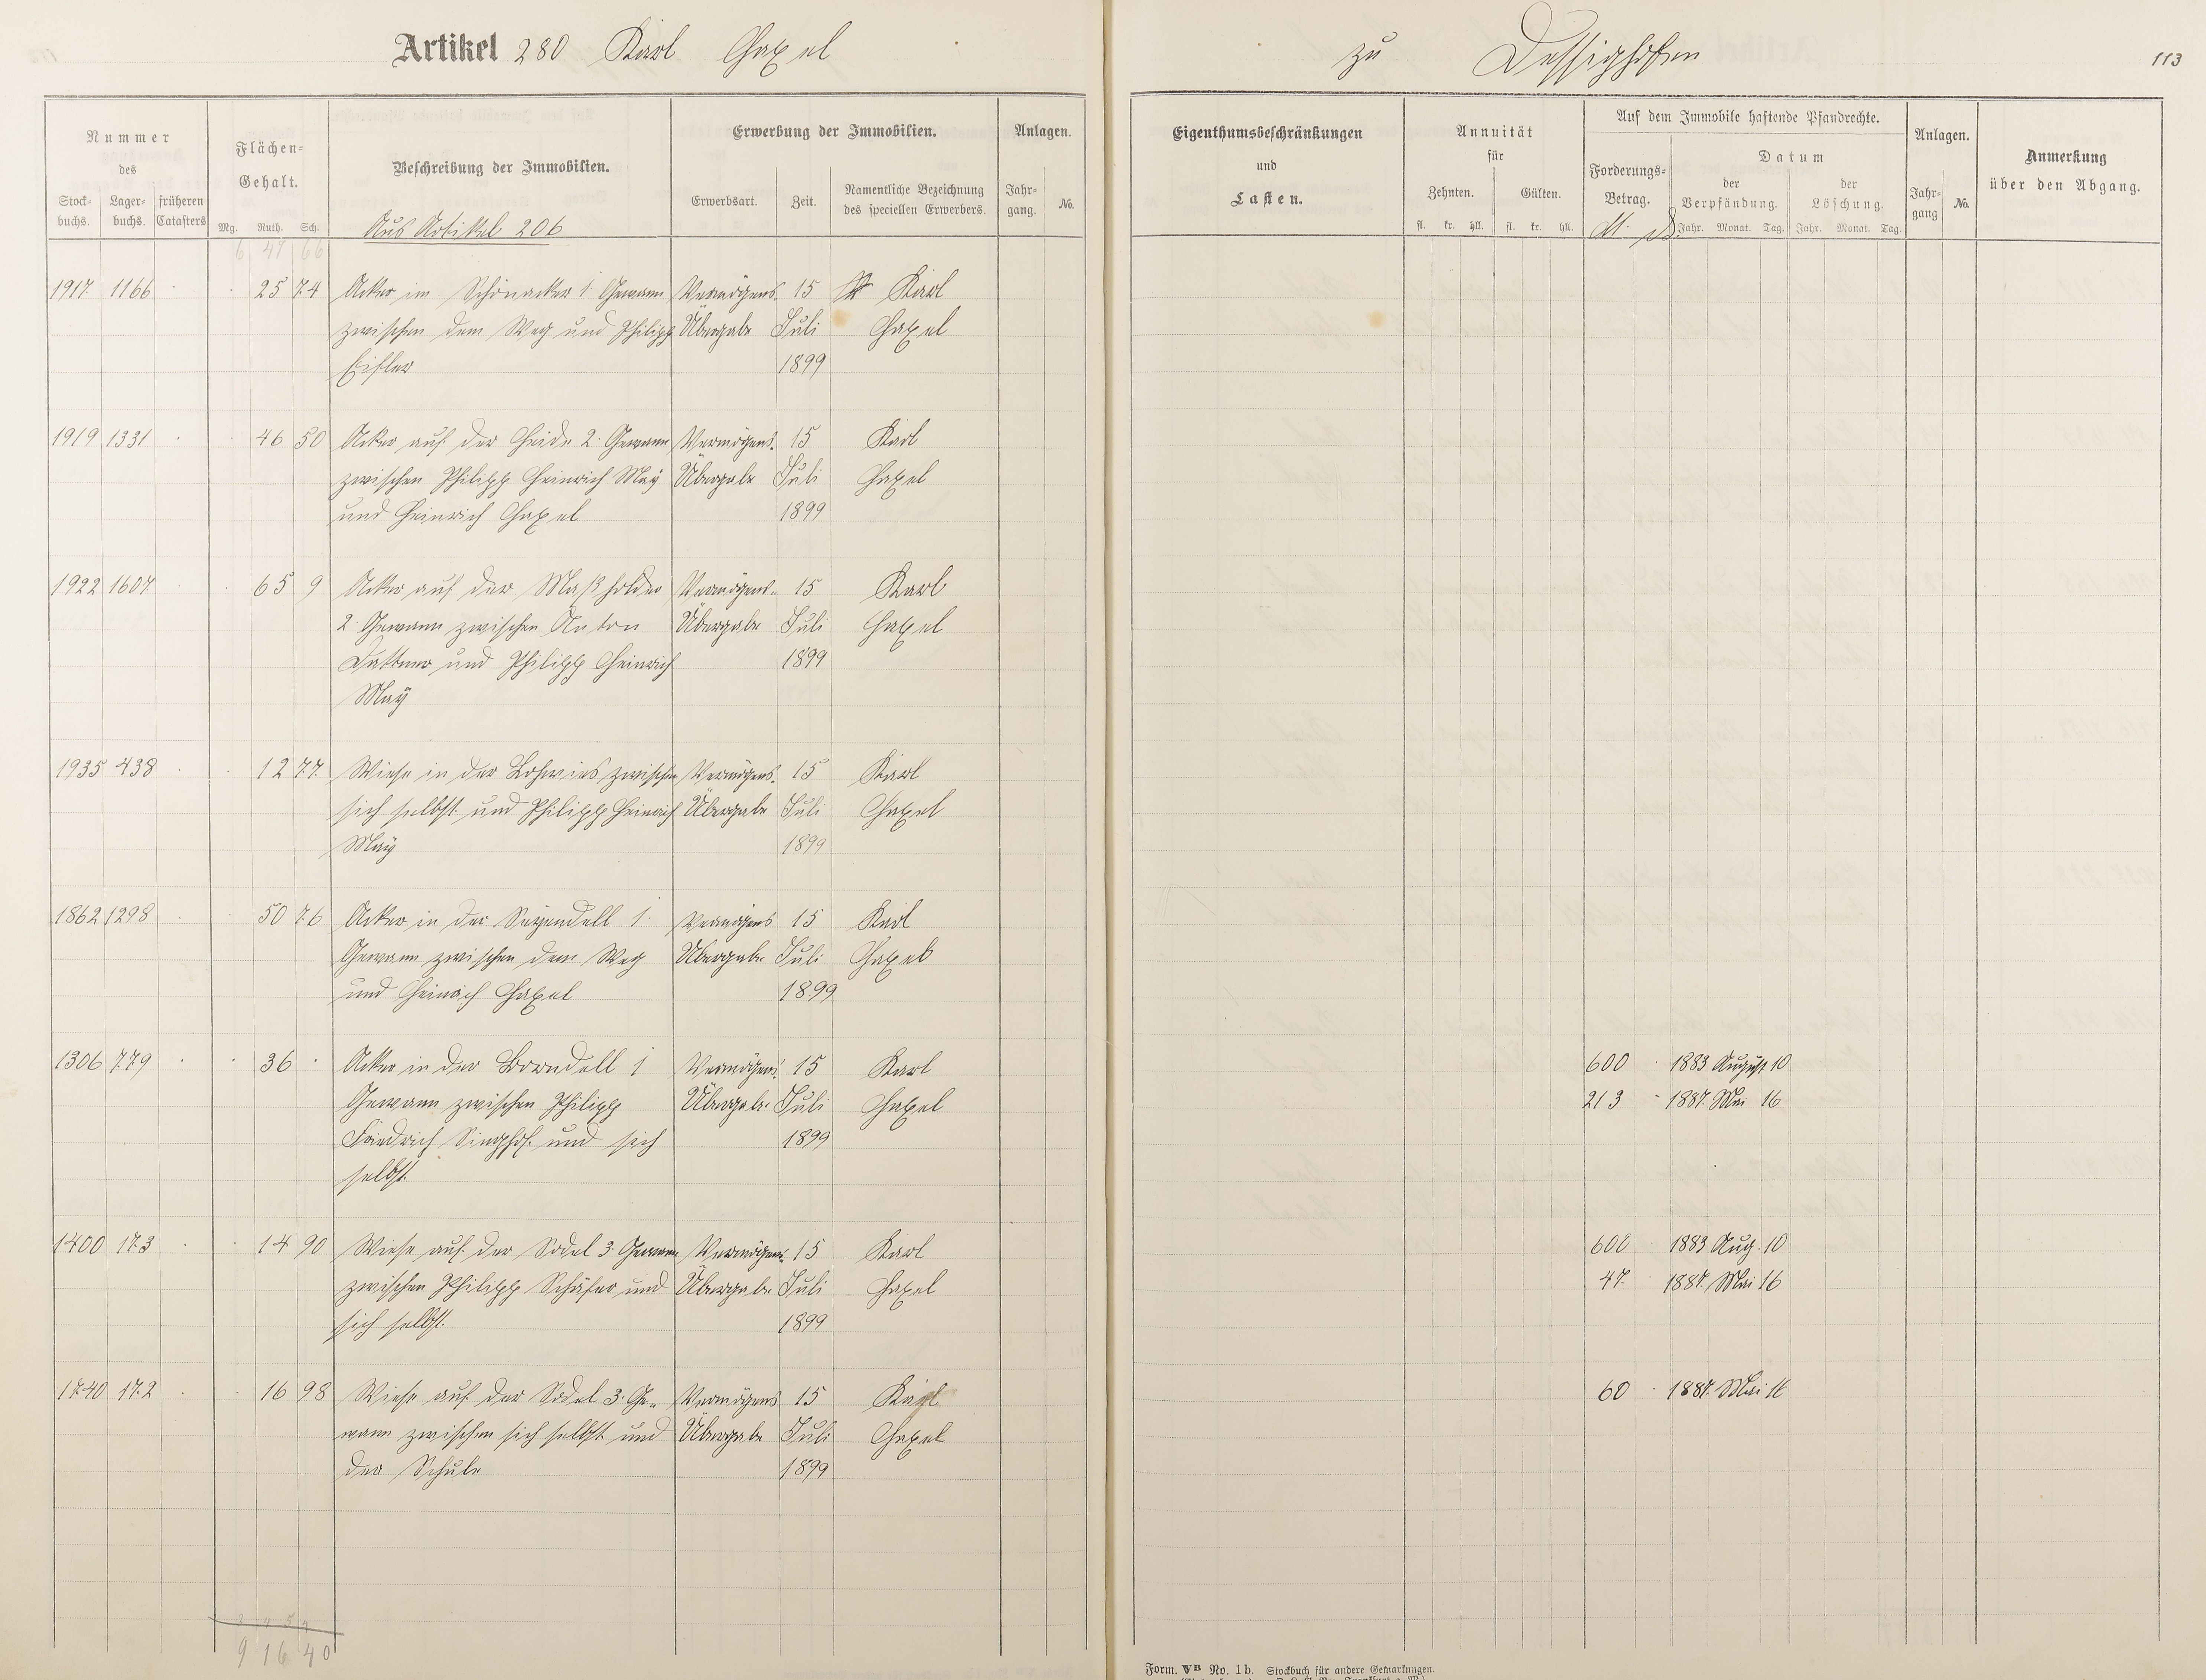 Artikel 280 Karl Gaxel
zu Dessighofen
113
Nummer
des
Stock-
buchs.
Lager-
buchs.
früheren
Catasters
Flächen-
Gehalt.
Mg. Ruth. Sch.
Beschreibung der Immobilien.
Aus Artikel 206
Erwerbung der Immobilien.
Erwerbsart.
Zeit.
Namentliche Bezeichnung
des speciellen Erwerbers.
Anlagen.
Jahr-
gang.
No.
Eigenthumsbeschränkungen
und
Lasten.
Annuität
für
Zehnten. Gülten.
fl. kr. hll. fl. kr. hll.
Auf dem Immobile haftende Pfandrechte.
Forderungs-
Betrag.
Datum
der
Verpfändung.
der
Löschung.
Jahr. Monat. Tag. Jahr. Monat. Tag.
Anlagen.
Jahr-
gang
No.
Anmerkung
über den Abgang.
6 47 66
1917 1166 25 74 Acker im Schönacker 1 Gewann Vermögens- 15 Karl
zwischen dem Weg und Philipp Übergabe Juli Gaxel
Eisler 1899
1919 1331 46 50 Acker auf der Heide 2. Gewann Vermögens- 15 Karl
zwischen Philipp Heinrich May Übergabe Juli Gaxel
und Heinrich Gaxel 1899
1922 1607 65 9 Acker auf der Maßholder Vermögens- 15 Karl
2 Gewann zwischen Anton Übergabe Juli Gaxel
Dattner und Philipp Heinrich 1899
May
1935 438 12 77 Wiese in der Lohwies zwischen Vermögens- 15 Karl
sich selbst und Philipp Heinrich Übergabe Juli Gaxel
May 1899
1862 1298 50 76 Acker in der 1. Vermögens 15 Karl
Gewann zwischen dem Weg Übergabe Juli Gaxel
und Heinrich Gaxel 1899
1306 779 36 Acker in der Borndell 1 Vermögens- 15 Karl 600 1883 August 10
Gewann zwischen Philipp Übergabe Juli Gaxel 213 1887 Mai 16
Friedrich Singhof und sich 1899
selbst
1400 173 14 90 Wiese auf der Sodel 3. Gewann Vermögens- 15 Karl 600 1883 Aug. 10
zwischen Philipp Schäfer und Übergabe Juli Gaxel 47 1887 Mai 16
sich selbst. 1899
1740 172 16 98 Wiese auf der Sodel 3. Ge- Vermögens 15 Karl 60 1887 Mai 16
wann zwischen sich selbst und Übergabe Juli Gaxel
der Schule 1899
9 16 40
Form. VB No. 1b. Stockbuch für andere Gemarkungen.